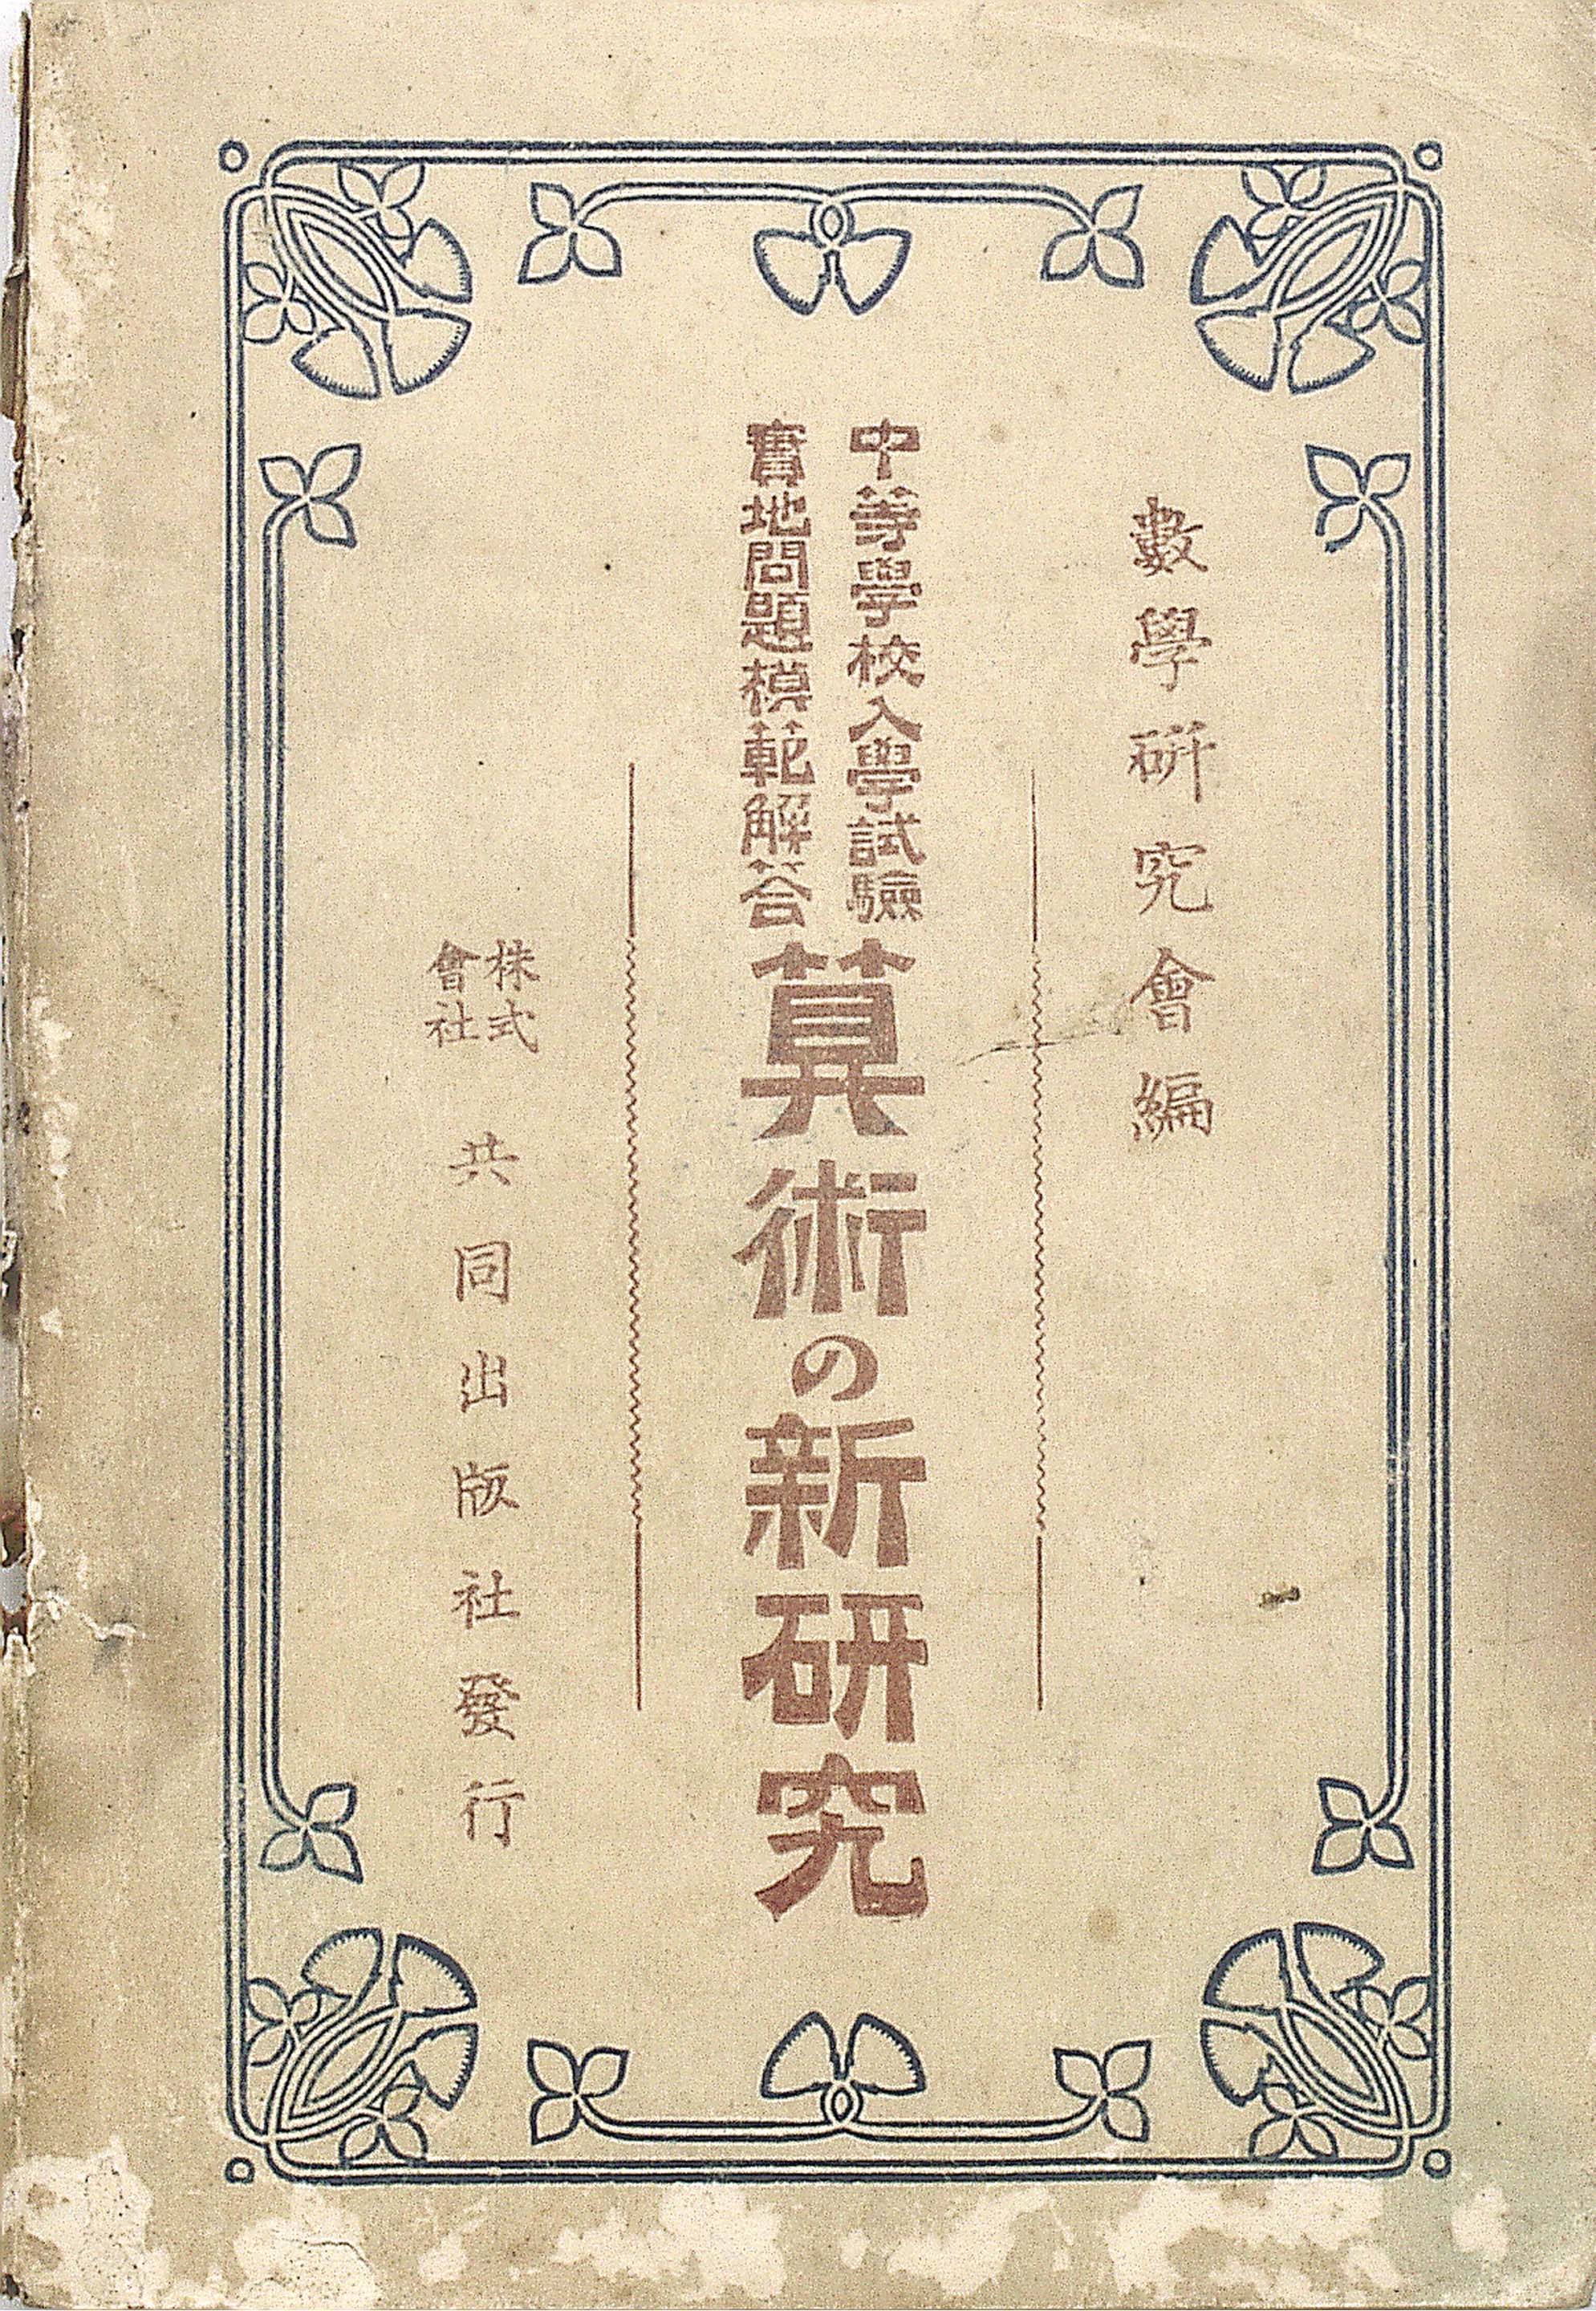 數學研究會編
中等學校入學試驗
實地問題模範解答
算術の新研究
株式
會社
共同出版社發行